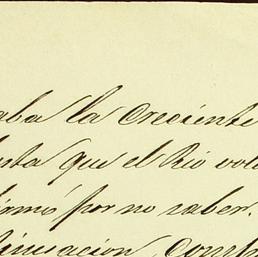 aba la creciente
sta que el Rio vol
irmó por no saber.
inuacion, comp